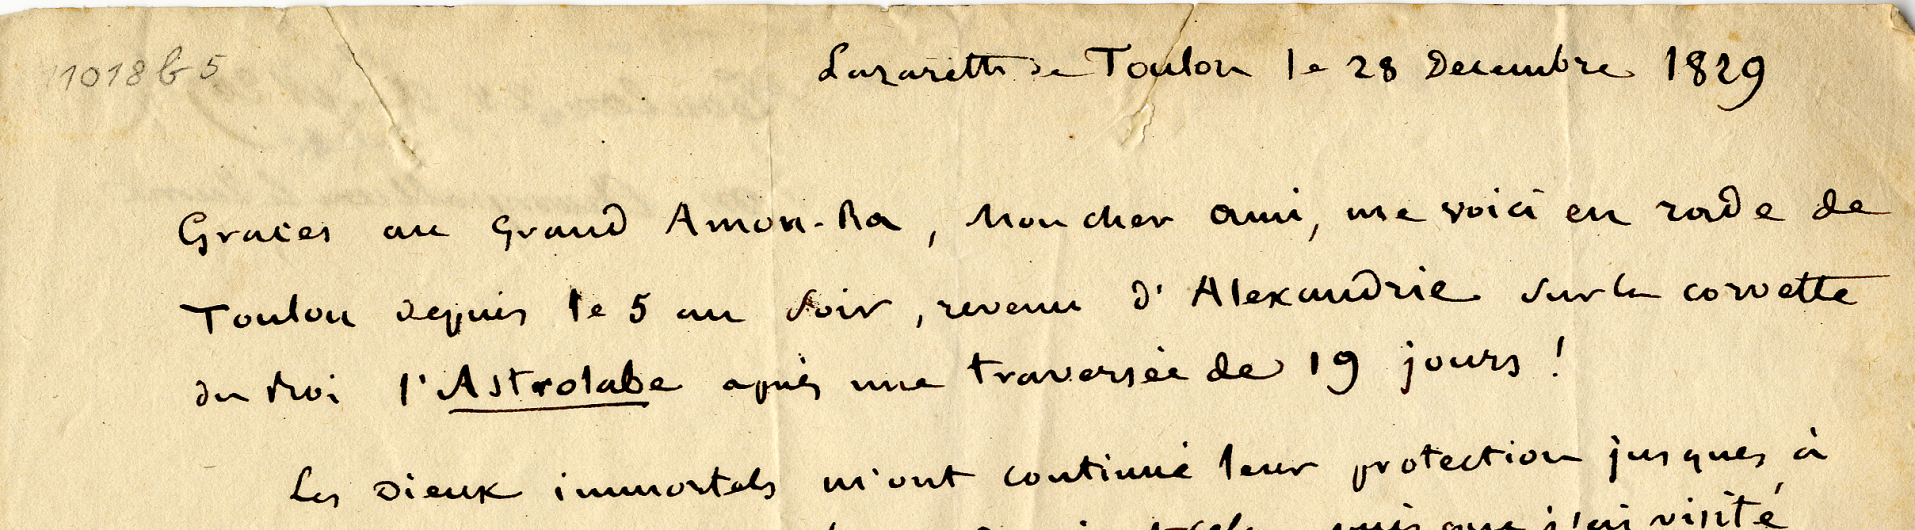 11018 b 5
Lazaretto de Toulon le 28 Decembre 1829
Graces au Grand Amon-Ra, Mon cher ami, me voici en rade de
Toulon depuis le 5 au soir, revenu d'Alexandrie sur la corvette
du Roi l'Astrolabe après une traversée de 19 jours !
Les Dieux immortels m'ont continué leur protection jusques à
puis que j'ai visité